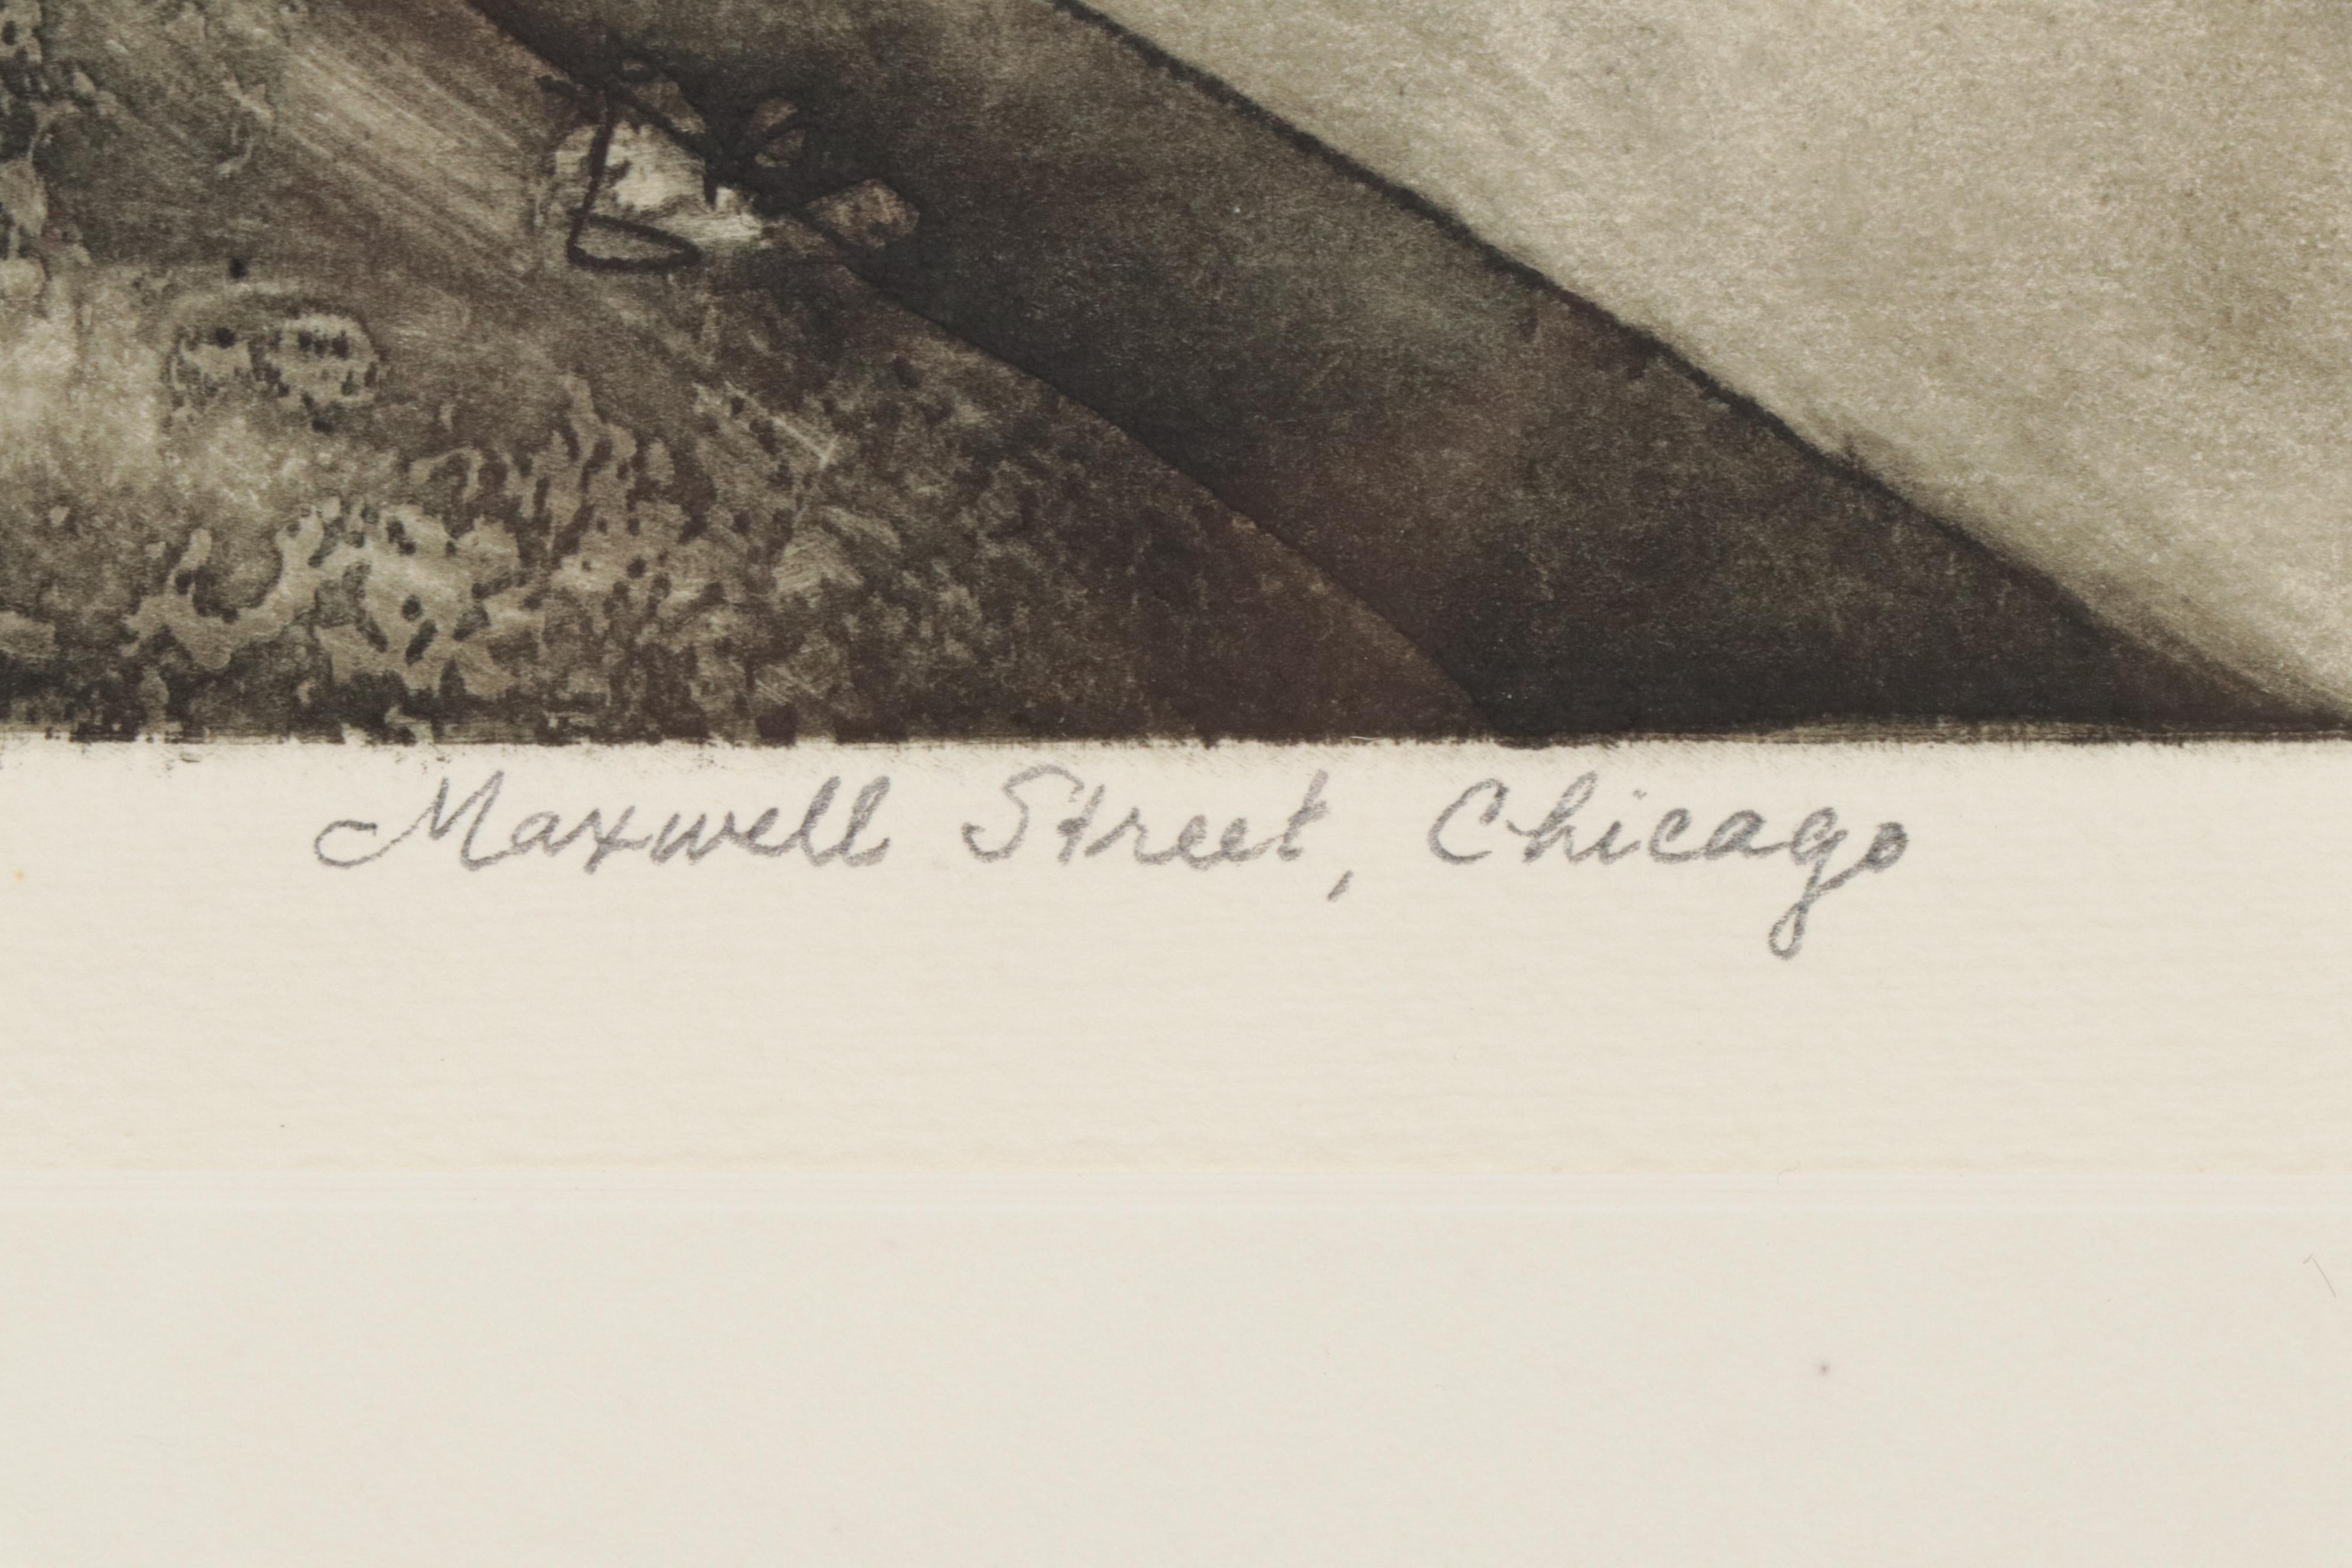 Maxwell Street, Chicago